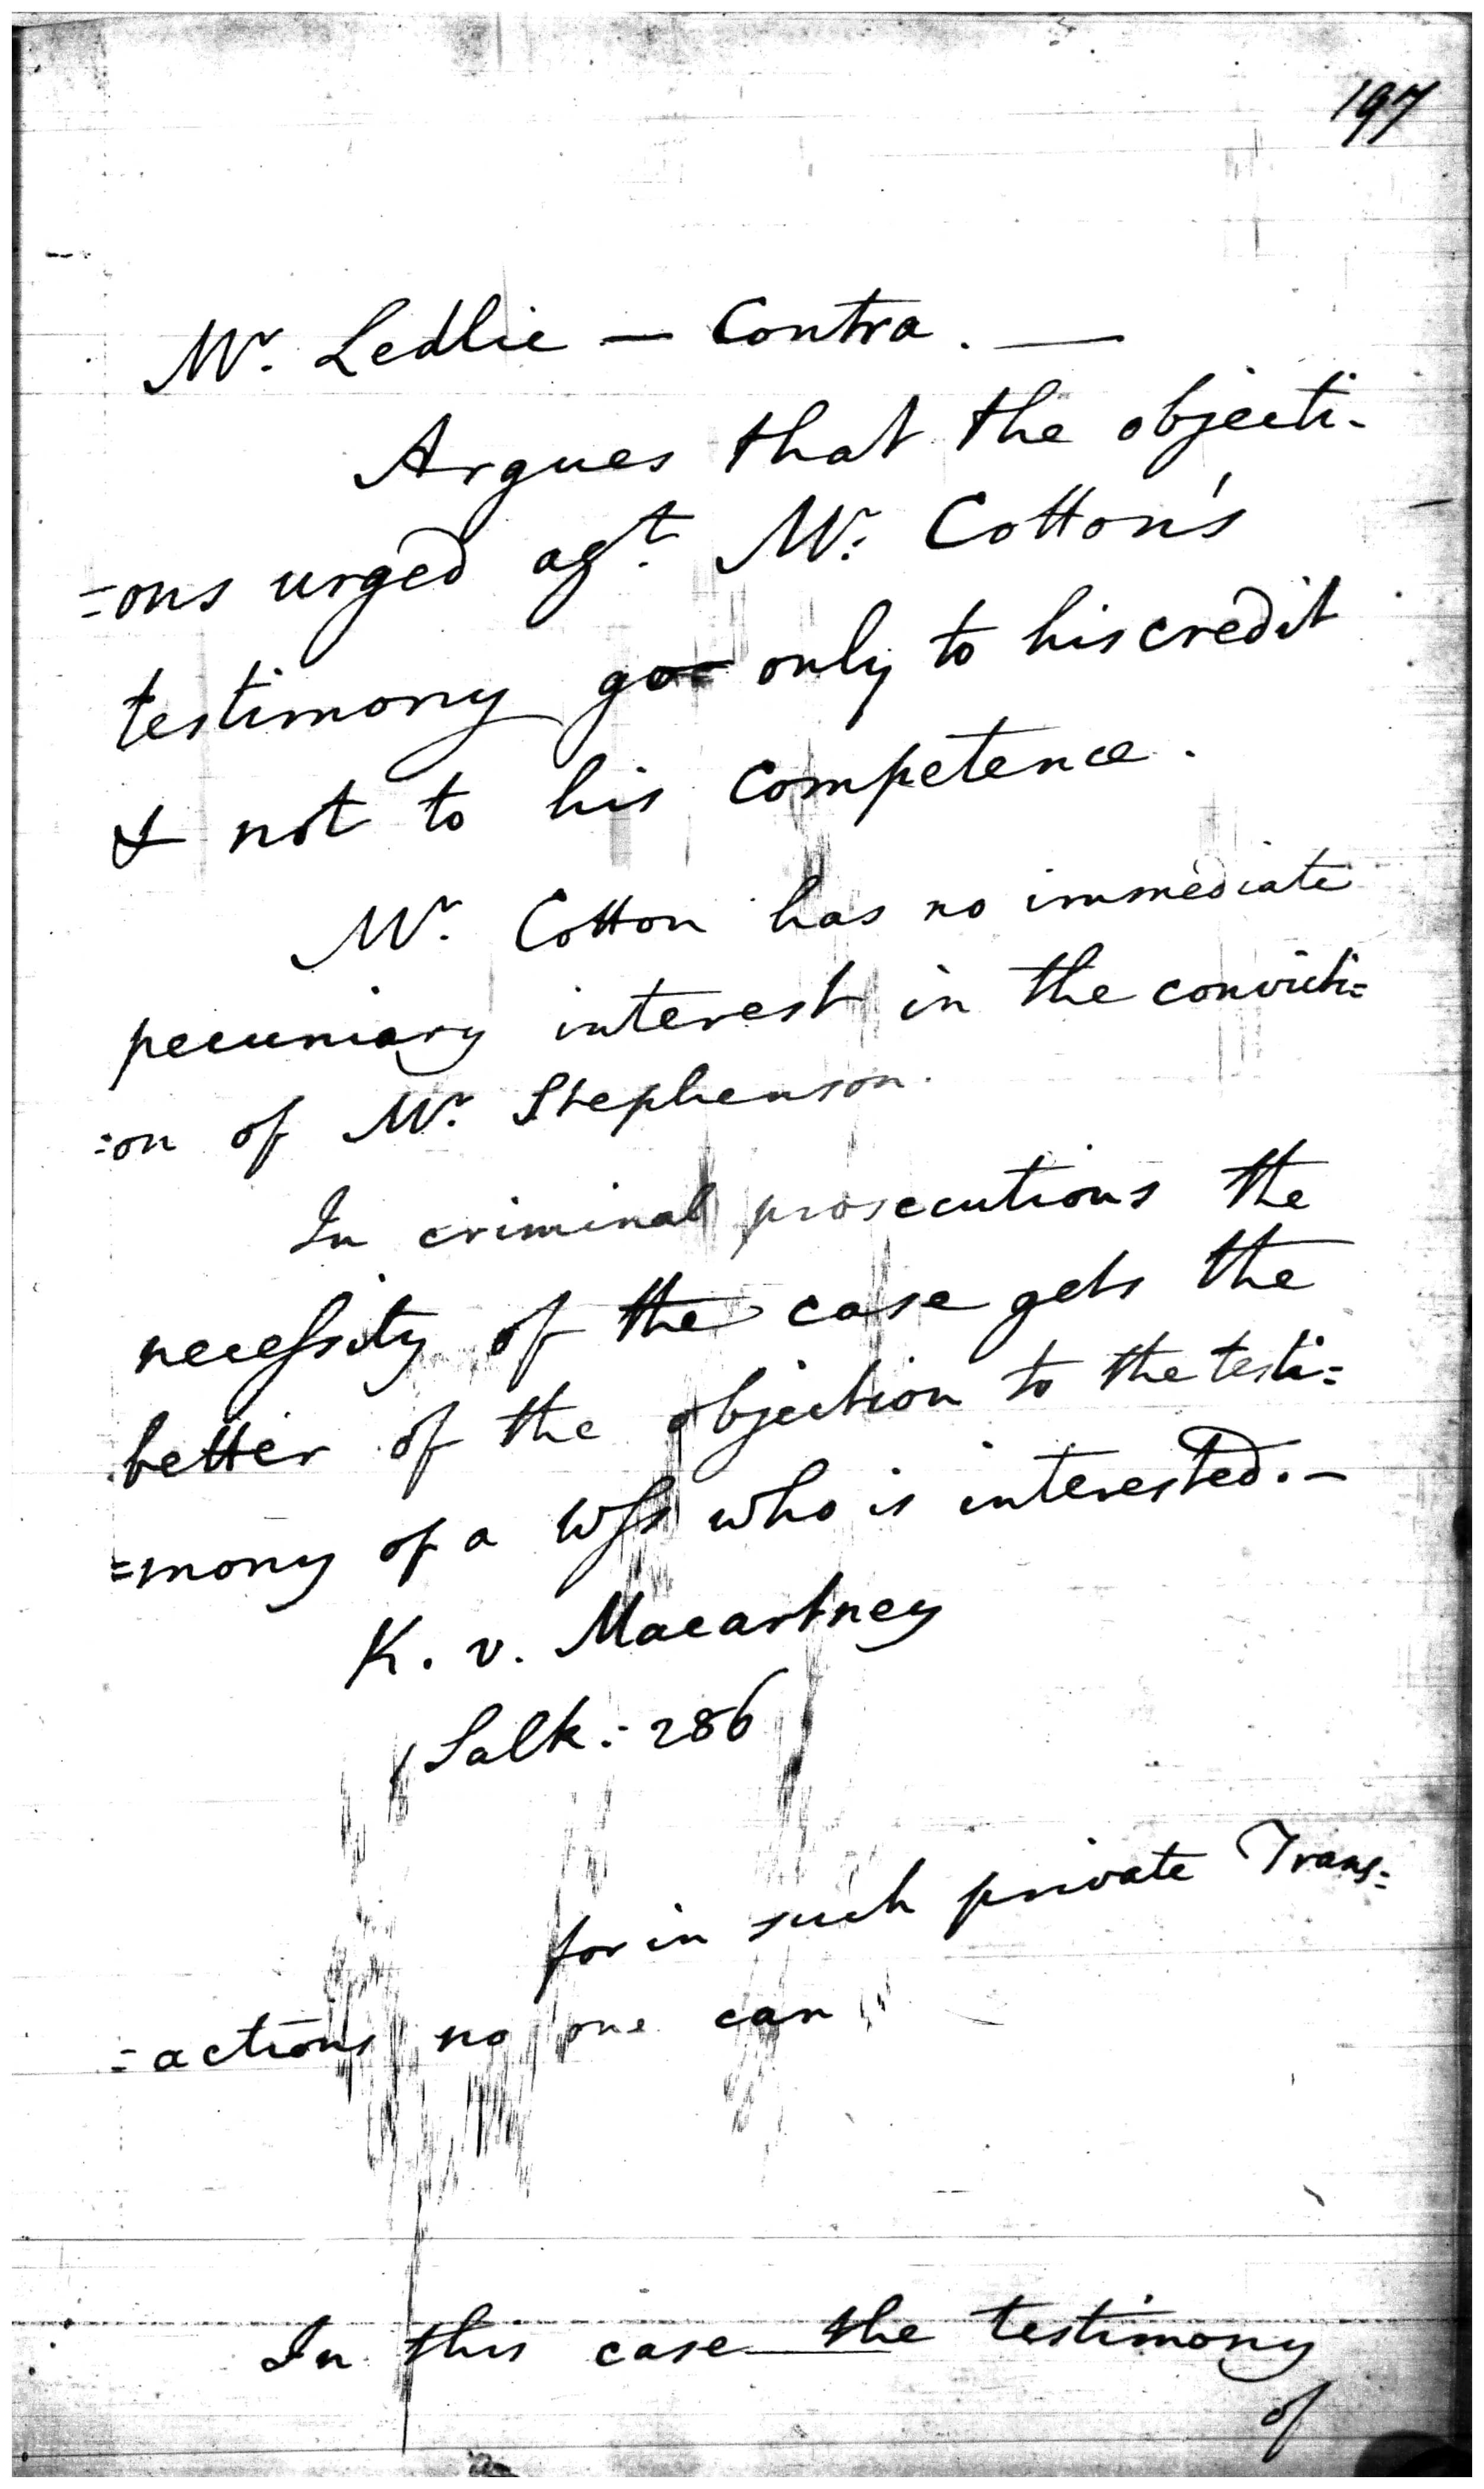 197
Mr. Ledlie — Contra. —
Argues that the objecti-
=ons urged agt. Mr. Cotton's
testimony go only to his credit
& not to his competence.
Mr. Cotton has no immediate
pecuniary interest in the convicti=
=on of Mr. Stephenson.
In criminal prosecutions the
necessity of the case gets the
better of the objection to the testi=
=mony of a Wss who is interested. —
K. v. Macartney
1 Salk: 286
for in such private Trans=
=actions no one can
In this case the testimony
of